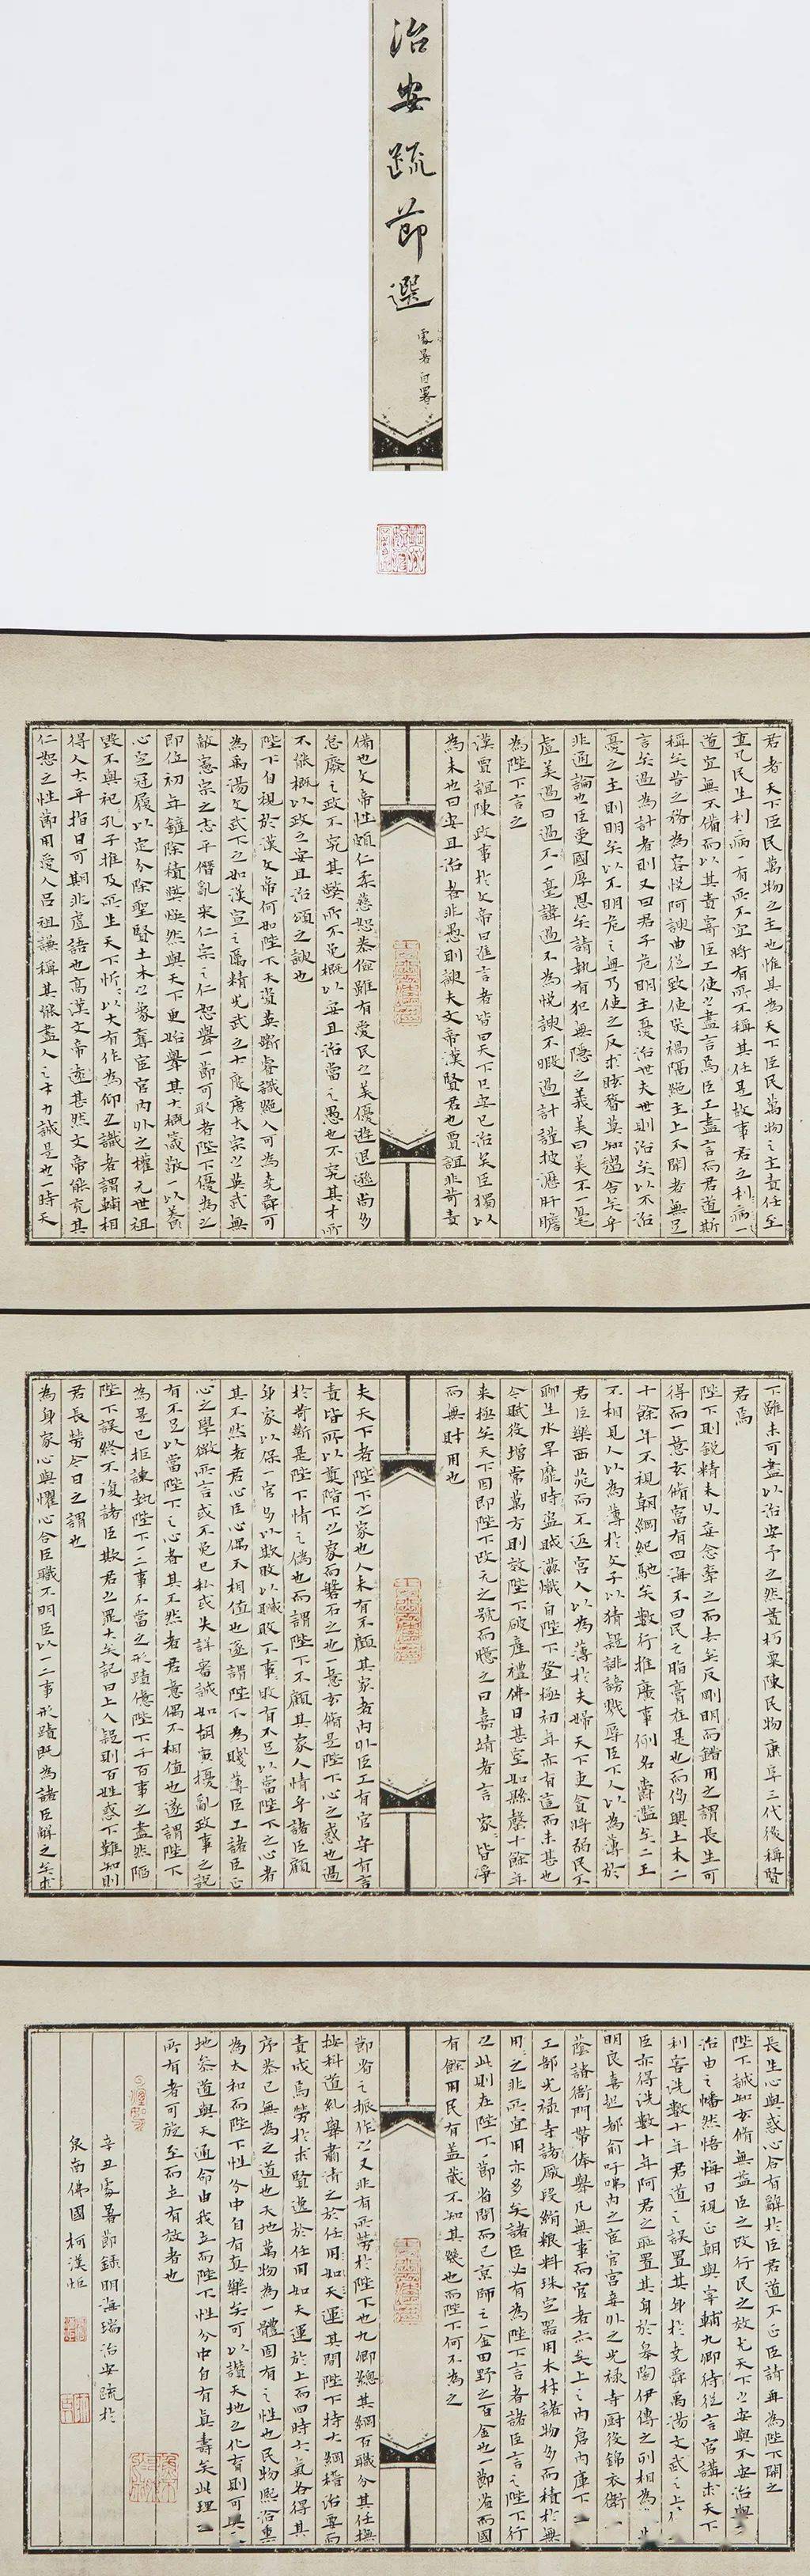 治安疏節選
處暑自署
君者天下臣民萬物之主也惟其為天下臣民萬物之主責任至
重凡民生利病一有所不宜將有所不稱其任是故事君之利病一
道宜無不備而以其責寄臣工使之盡言焉臣工盡言而君道斯
稱矣昔之務為容悅阿諛曲從致使災禍隔絕主上不聞者無足
言矣過為計者則又曰君子危明主憂治世夫世則治矣以不治
憂之主則明矣以不明危之無乃使之反求眩瞀莫知趨舍矣乎
非通論也臣受國厚恩矣請執有犯無隱之義美曰美不一毫
虛美過曰過不一毫諱過不為悅諛不暇過計謹披瀝肝膽
為陛下言之
漢賈誼陳政事於文帝曰進言者皆曰天下已安已治矣臣獨以
為未也曰安且治者非愚則諛夫文帝漢賢君也賈誼非苛責
備也文帝性頗仁柔慈恕恭儉雖有愛民之美優遊退遜尚多
怠廢之政不究其弊所不免概以安且治當之愚也不究其才所
不能概以政之安且治頌之諛也
陛下自視於漢文帝何如陛下天資英斷睿識絕人可為堯舜可
為禹湯文武下之如漢宣之厲精光武之大度唐太宗之英武無
敵憲宗之志平僭亂宋仁宗之仁恕舉一節可取者陛下優為之
即位初年鏟除積弊煥然與天下更始舉其大概箴敬一以養
心定冠履以定分除聖賢土木之象奪宦官內外之權元世祖
毀不與祀孔子推及所生天下忻忻以大有作為仰之識者謂輔相
得人太平指日可期非虛語也高漢文帝遠甚然文帝能充其
仁恕之性節用愛人呂祖謙稱其能盡人之才力誠是也一時天
下雖未可盡以治安予之然貫朽粟陳民物康阜三代後稱賢
君焉
陛下則銳精未久妄念牽之而去矣反剛明而錯用之謂長生可
得而一意玄脩富有四海不曰民之脂膏在是也而侈興土木二
十餘年不視朝綱紀馳矣數行推廣事例名爵濫矣二王
不相見人以為薄於父子以猜疑誹謗戮辱臣下人以為薄於
君臣樂西苑而不返宮人以為薄於夫婦天下吏貪將弱民不
聊生水旱靡時盜賊滋熾自陛下登極初年亦有這而未甚也
今賦役增常萬方則效陛下破產禮佛日甚室如縣罄十餘年
來極矣天下因即陛下改元之號而臆之曰嘉靖者言家家皆淨
而無財用也
夫天下者陛下之家也人未有不顧其家者內外臣工有官守有言
責皆所以奠陛下之家而磐石之也一意玄脩是陛下心之惑也過
於苛斷是陛下情之偽也而謂陛下不顧其家人情乎諸臣顧
身家以保一官多以欺敗以贓敗不事事敗有不足以當陛下之心者
其不然者君心臣心偶不相值也遂謂陛下為賤薄臣工諸臣正
心之學微所言或不免己私或失詳審誠如胡寅擾亂政事之說
有不足以當陛下之心者其不然者君意偶不相值也遂謂陛下
為是已拒諫執陛下一二事不當之形蹟億陛下千百事之盡然陷
陛下誤終不復諸臣欺君之罪大矣記曰上人疑則百姓惑下難知則
君長勞今日之謂也
為身家心與懼心合臣職不明臣以一二事形蹟既為諸臣解之矣求
長生心與惑心合有辭於臣君道不正臣請再為陛下開之
陛下誠知玄脩無益臣之改行民之效尤天下之安與不安治與不
治由之幡然悟悔日視正朝與宰輔九卿侍從言官講求天下
利害洗數十年君道之誤置其身於堯舜禹湯文武之上使其
臣亦得洗數十年阿君之恥置其身於皋陶伊傅之列相為
明良喜起都俞吁咈內之宦官宮妾外之光祿寺廚役錦衣衛
蔭諸衙門帶俸舉凡無事而官者亦多矣上之內倉內庫下
工部光祿寺諸廠段絹糧料珠寶器用木材諸物多而積於無
用用之非所宜用亦多矣諸臣必有為陛下言者諸臣言之陛下行
之此則在陛下一節省間而已京師之一金田野之百金也一節省而國
有餘用民有蓋藏不知其幾也而陛下何不為之
節省之振作之又非有所勞於陛下也九卿總其綱百職分其任撫
按科道糺舉肅清之於任用如天運其間陛下持大綱稽治要而
責成焉勞於求賢逸於任用如天運於上而四時六氣各得其
序恭己無為之道也天地萬物為一體固有之性也民物熙洽薰
為太和而陛下性分中自有真樂矣可以讚天地之化育則可與天
地參道與天通命由我立而陛下性分中自有真壽矣此理之
所有者可旋至而立有效者也
辛丑處暑節錄明海瑞治安疏於
泉南佛國柯漢炬